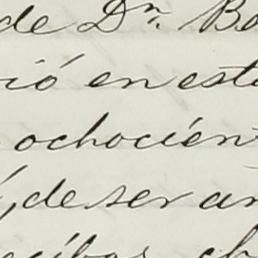 de Dn. Be
ió en est
ochocien
, de ser an